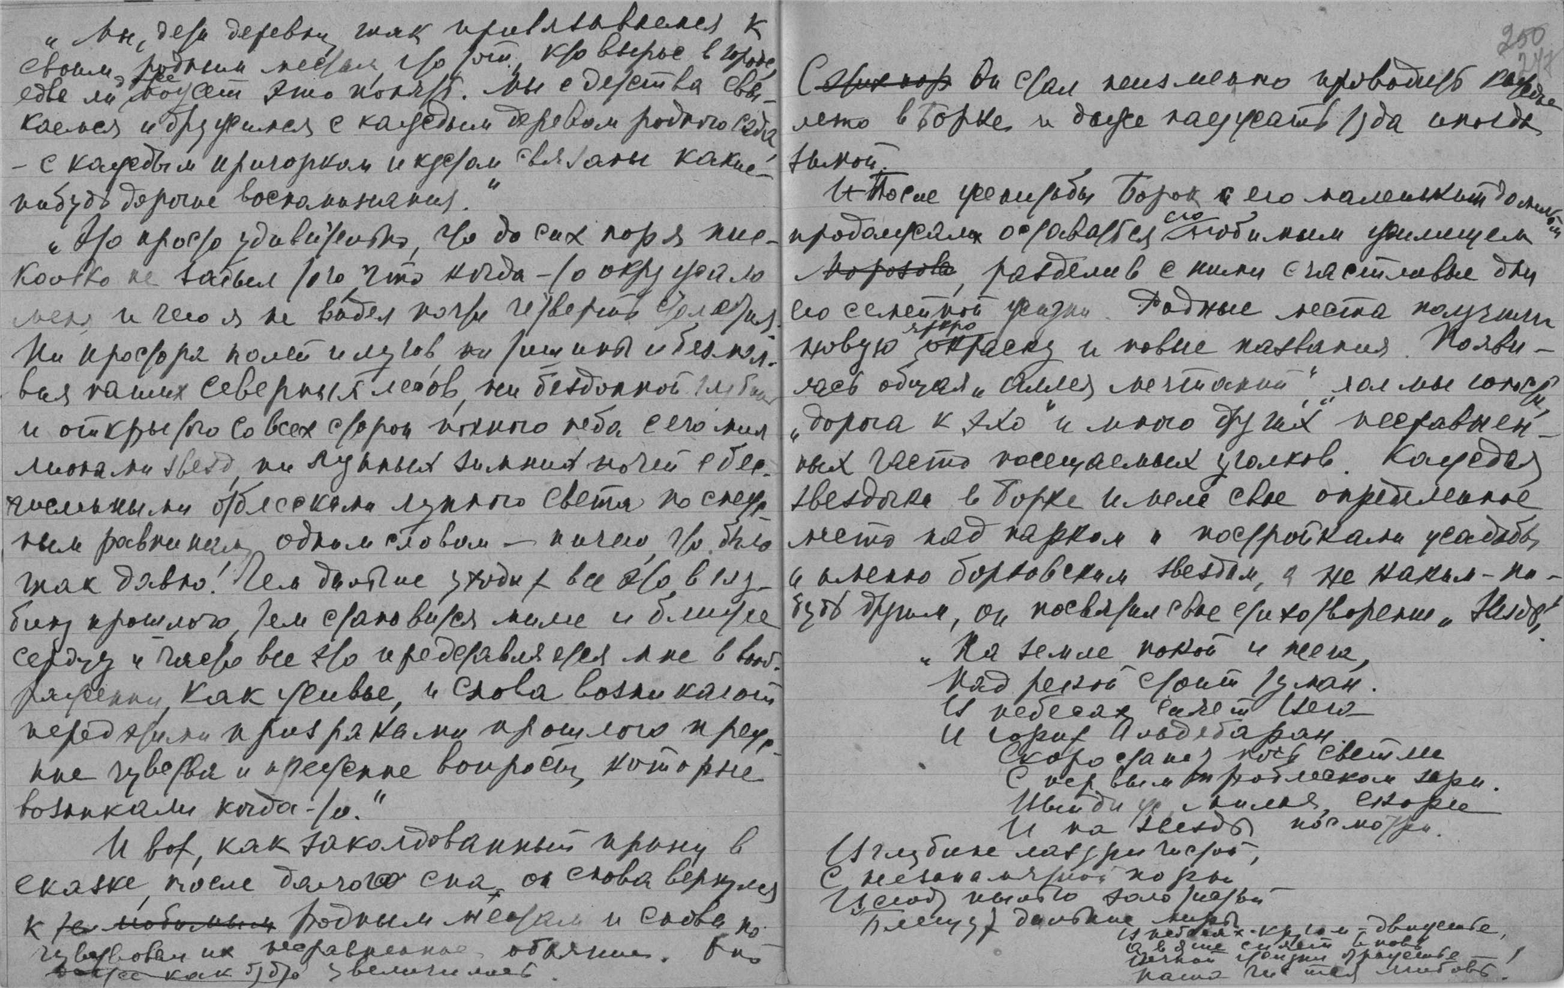 „Мы, дети деревни, так привязываемся к
своим родным местам, что тот, кто вырос в городе,
едва ли может это понять. Мы с детства свы-
каемся и дружимся с каждым деревом родного сада,
– с каждым пригорком и кустом связаны какие-
нибудь дорогие воспоминания."
„Это просто удивительно, что до сих пор я нис-
колько не забыл того, что когда-то окружало
меня и чего я не видел почти четверть столетия.
Ни простора полей и лугов, ни тишины и безмол-
вия наших северных лесов, ни бездонной глубины
и открытого со всех сторон ночного неба с его мил
лионами звезд, ни лунных зимних ночей с бес-
численными отблесками лунного света по снеж
ным равнинам, одним словом — ничего, что было
так давно! Чем дальше уходит все это в глу-
бину прошлого, тем становится милее и ближе
сердцу и часто все это представляется мне в вооб-
ражении, как живые, и снова возникают
перед этими призраками прошлого преж-
ние чувства и прежние вопросы, которые
возникали когда-то."
И вот, как заколдованный принц в
сказке, после долгого сна, он снова вернулся
к тем любимым родным местам и снова по-
чувствовал их несравненное обаяние. Оно
даже как будто увеличилось.
250
247
С этих пор Он стал неизменно проводить каждое
лето в Борке и даже наезжать туда иногда
зимой.
И После женитьбы Борок и его маленький домик
продолжали оставаться его любимым жилищем
Морозова, разделив с ними счастливые дни
его семейной жизни. Родные места получили
новую яркую окраску и новые названия. Появи-
лась общая „Аллея мечтаний",
„дорога к эхо" и много других несравнен-
ных часто посещаемых уголков. Каждая
звездочка в Борке имела свое определенное
место над парком и постройками усадьбы
и именно борковским звездам, а не каким-ни-
будь другим, он посвятил свое стихотворение „Звезды".
„На земле покой и нега,
Над рекой стоит туман.
И в небесах сияет Вега
И горит Альдебаран.
Скоро станет ночь светлее
С первым проблеском зари.
Выйди ж, милая, скорее
И на звезды посмотри.
Из глубин лазури чистой,
С незапамятной поры
Всюду пылью золотистой
Блещут дальние миры.
В небесах кругом движенье,
А в душе сияет вновь
Вечной жизни отраженье
Наша чистая любовь!